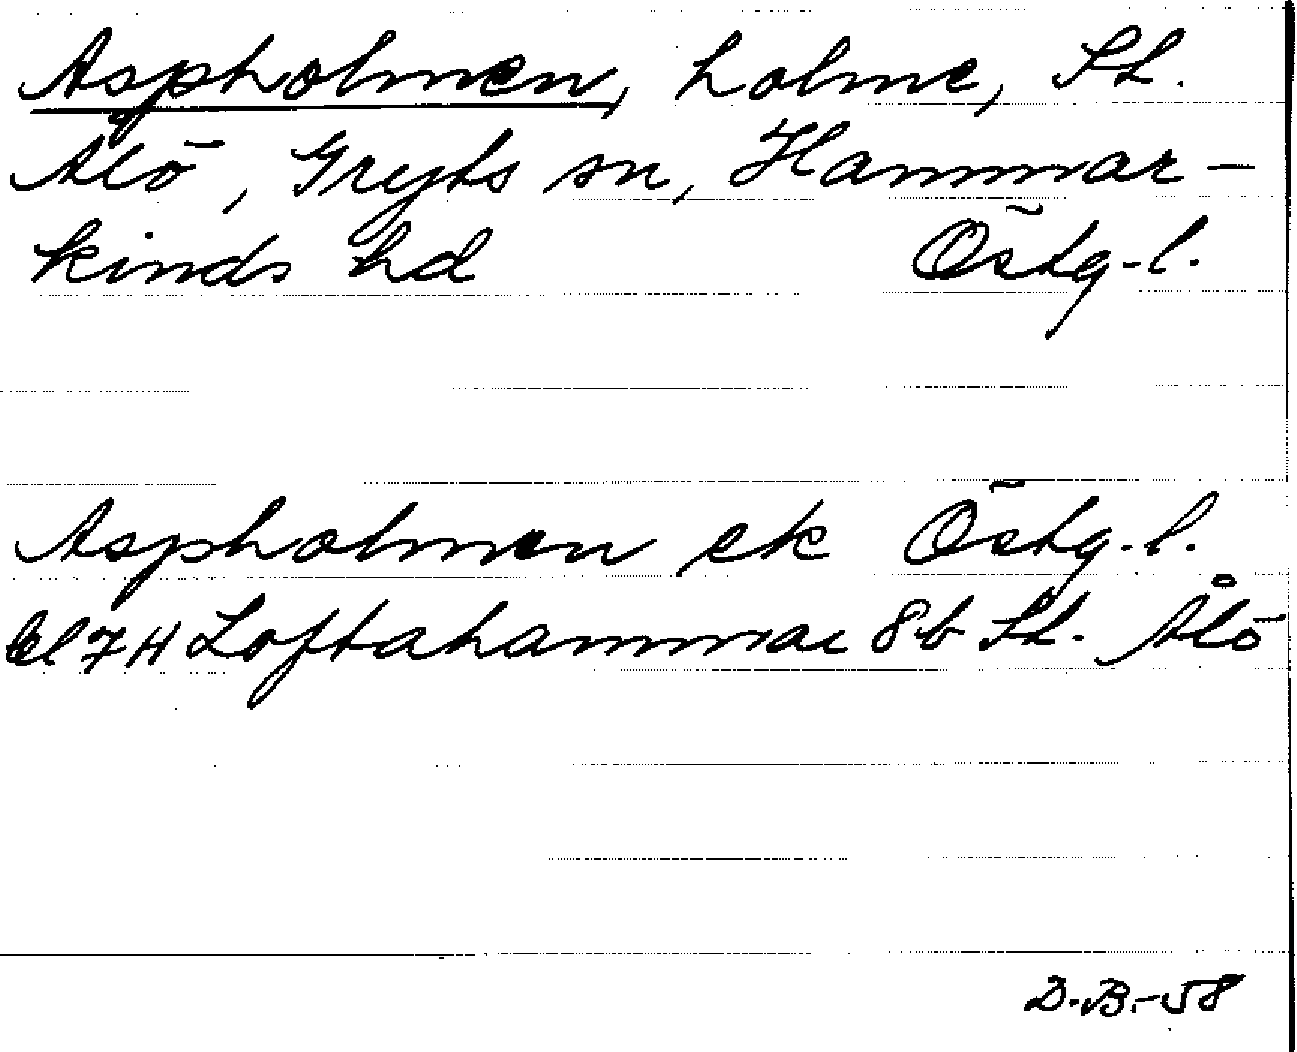 Aspholmen, holme, St.
Ålö, Gryts sn, Hammar-
kinds hd Östg.l.
Aspholmen ek Östg.l.
bl 7H Loftahammar 8b St. Ålö
D.B.-58